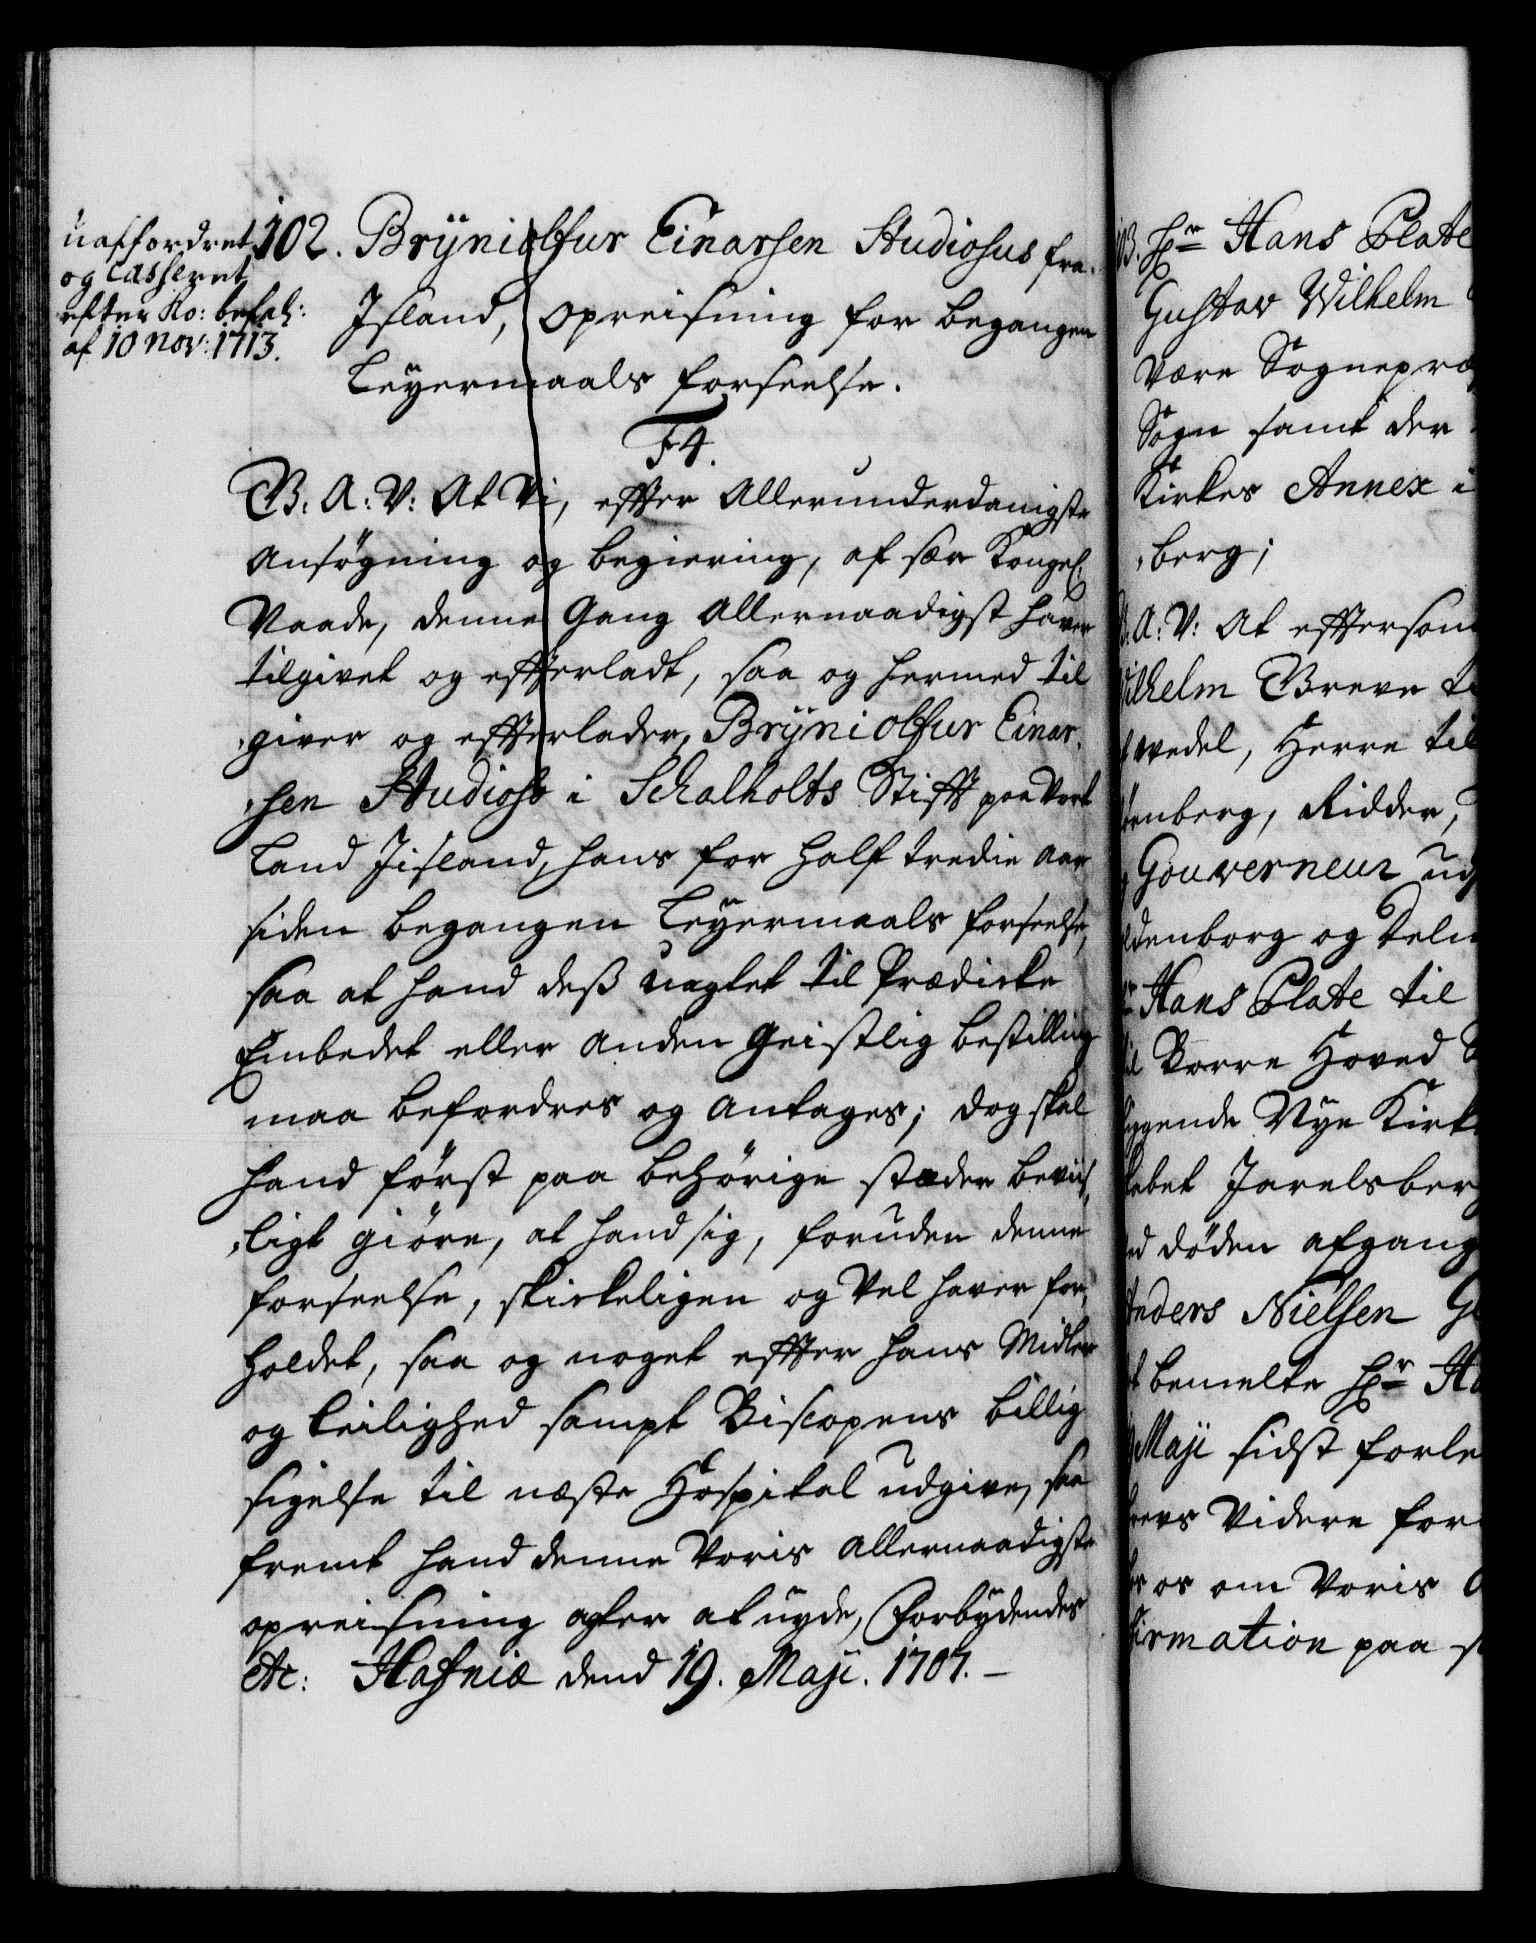 uaffordret
og Casseret
efter Ko: befal:
af 10 Nov: 1713.
102. Brÿniolfur Einarsen Studiosus fra
Jsland, Opreisning for begangen
Leÿermaals forseelse.
F4.
B. A: V: At Vi, effter Allerunderdanigste
Ansøgning og begiering, af sær Kongel:
Naade, denne Gang Allernaadigst haver
tilgivet og effterladt, saa og hermed til
,giver og effterlader, Brÿniolfur Einar,
,sen Studioso i Schalholts Stifft paa Vort
Land Jisland, hans for half tredie aar
siden begangen Leÿermaals forseelse,
saa at hand deß uagtet til Prædicke
Embedet eller anden Geistlig bestilling
maa befordres og antages; dog skal
hand først paa behørige stæder beviis,
,ligt giøre, at hand sig, foruden denne
forseelse, skickeligen og Vel haver for,
holdet, saa og noget effter hans Midler
og Leilighed sampt Biscopens billig
sigelse til næste Hospital udgive, saa
fremt hand denne Voris allernaadigste
opreisning agter at nyde, Forbydendes
etc: Hafniæ dend 19. Maji. 1707.
103. Hr Hans Plate
Gustav Wilhelm
Være Sognepræ
Sogn samt der
Kirkes Annex i
,berg;
B. A: V: At efftersom
Wilhelm Breve ti
wedel, Herre til
enberg, Ridder,
Gouverneur ud
ldenborg og Delm
Hr Hans Plate til
til Borre Hoved S
liggende Nye Kirk
kabet Jarelsberg
ved døden afgang
Anders Nielsen G
t bemelte Hr Ha
Maji sidst forle
brevs Videre for
os om Voris
firmation paa